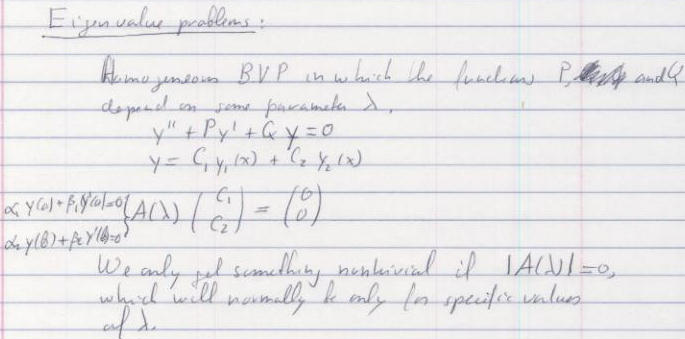 Eigenvalue problems:
Homogeneous BVP in which the functions P, and Q
depend on some parameter λ.
y'' + Py' + Qy = 0
y = C₁ y₁(x) + C₂ y₂(x)
α₁ y(a) + β₁ y'(a) = 0 } A(λ) (C₁ C₂) = (0 0)
α₂ y(b) + β₂ y'(b) = 0
We only get something nontrivial if |A(λ)| = 0,
which will normally be only for specific values
of λ.